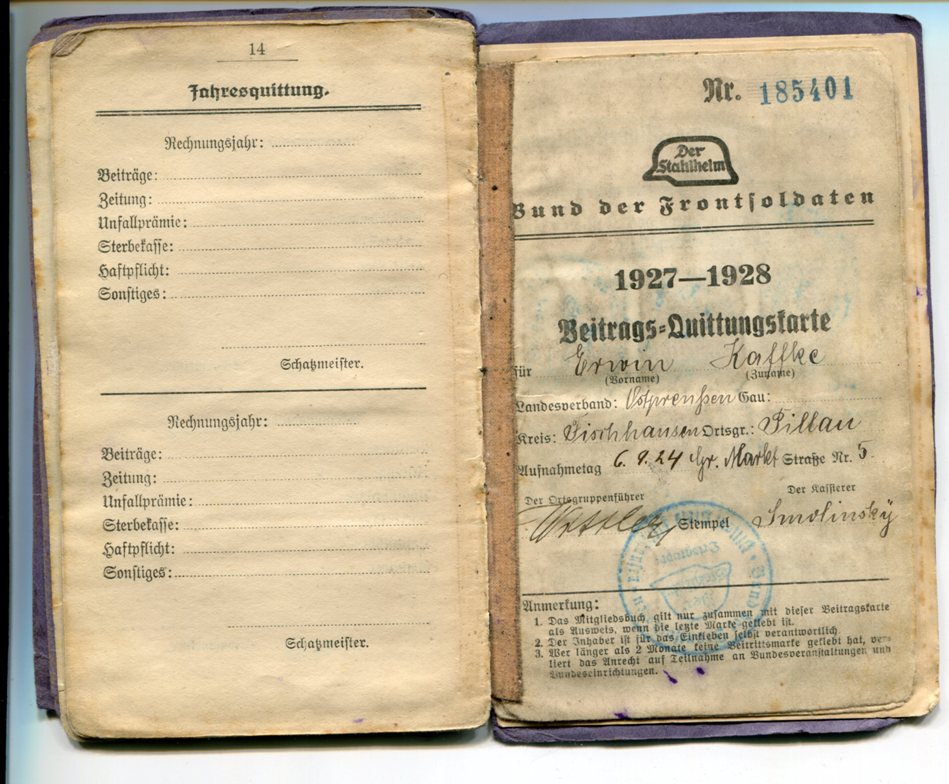 14
Jahresquittung.
Rechnungsjahr:
Beiträge:
Zeitung:
Unfallprämie:
Sterbekasse:
Haftpflicht:
Sonstiges:
Schatzmeister.
Rechnungsjahr:
Beiträge:
Zeitung:
Unfallprämie:
Sterbekasse:
Haftpflicht:
Sonstiges:
Schatzmeister.
Nr. 185401
Der
Stahlhelm
Bund der Frontsoldaten
1927—1928
Beitrags-Quittungskarte
für Erwin Kaffke
(Vorname) (Zuname)
Landesverband: Ostpreußen Gau:
Kreis: Fischhausen Ortsgr.: Pillau
Aufnahmetag 6.9.24 Gr. Markt Straße Nr. 5
Der Ortsgruppenführer Der Kassierer
Stempel Smolinsky
Anmerkung:
1. Das Mitgliedsbuch gilt nur zusammen mit dieser Beitragskarte
als Ausweis, wenn die letzte Marke geklebt ist.
2. Der Inhaber ist für das Einkleben selbst verantwortlich
3. Wer länger als 2 Monate keine Beitrittsmarke geklebt hat, ver-
liert das Anrecht auf Teilnahme an Bundesveranstaltungen und
Bundeseinrichtungen.